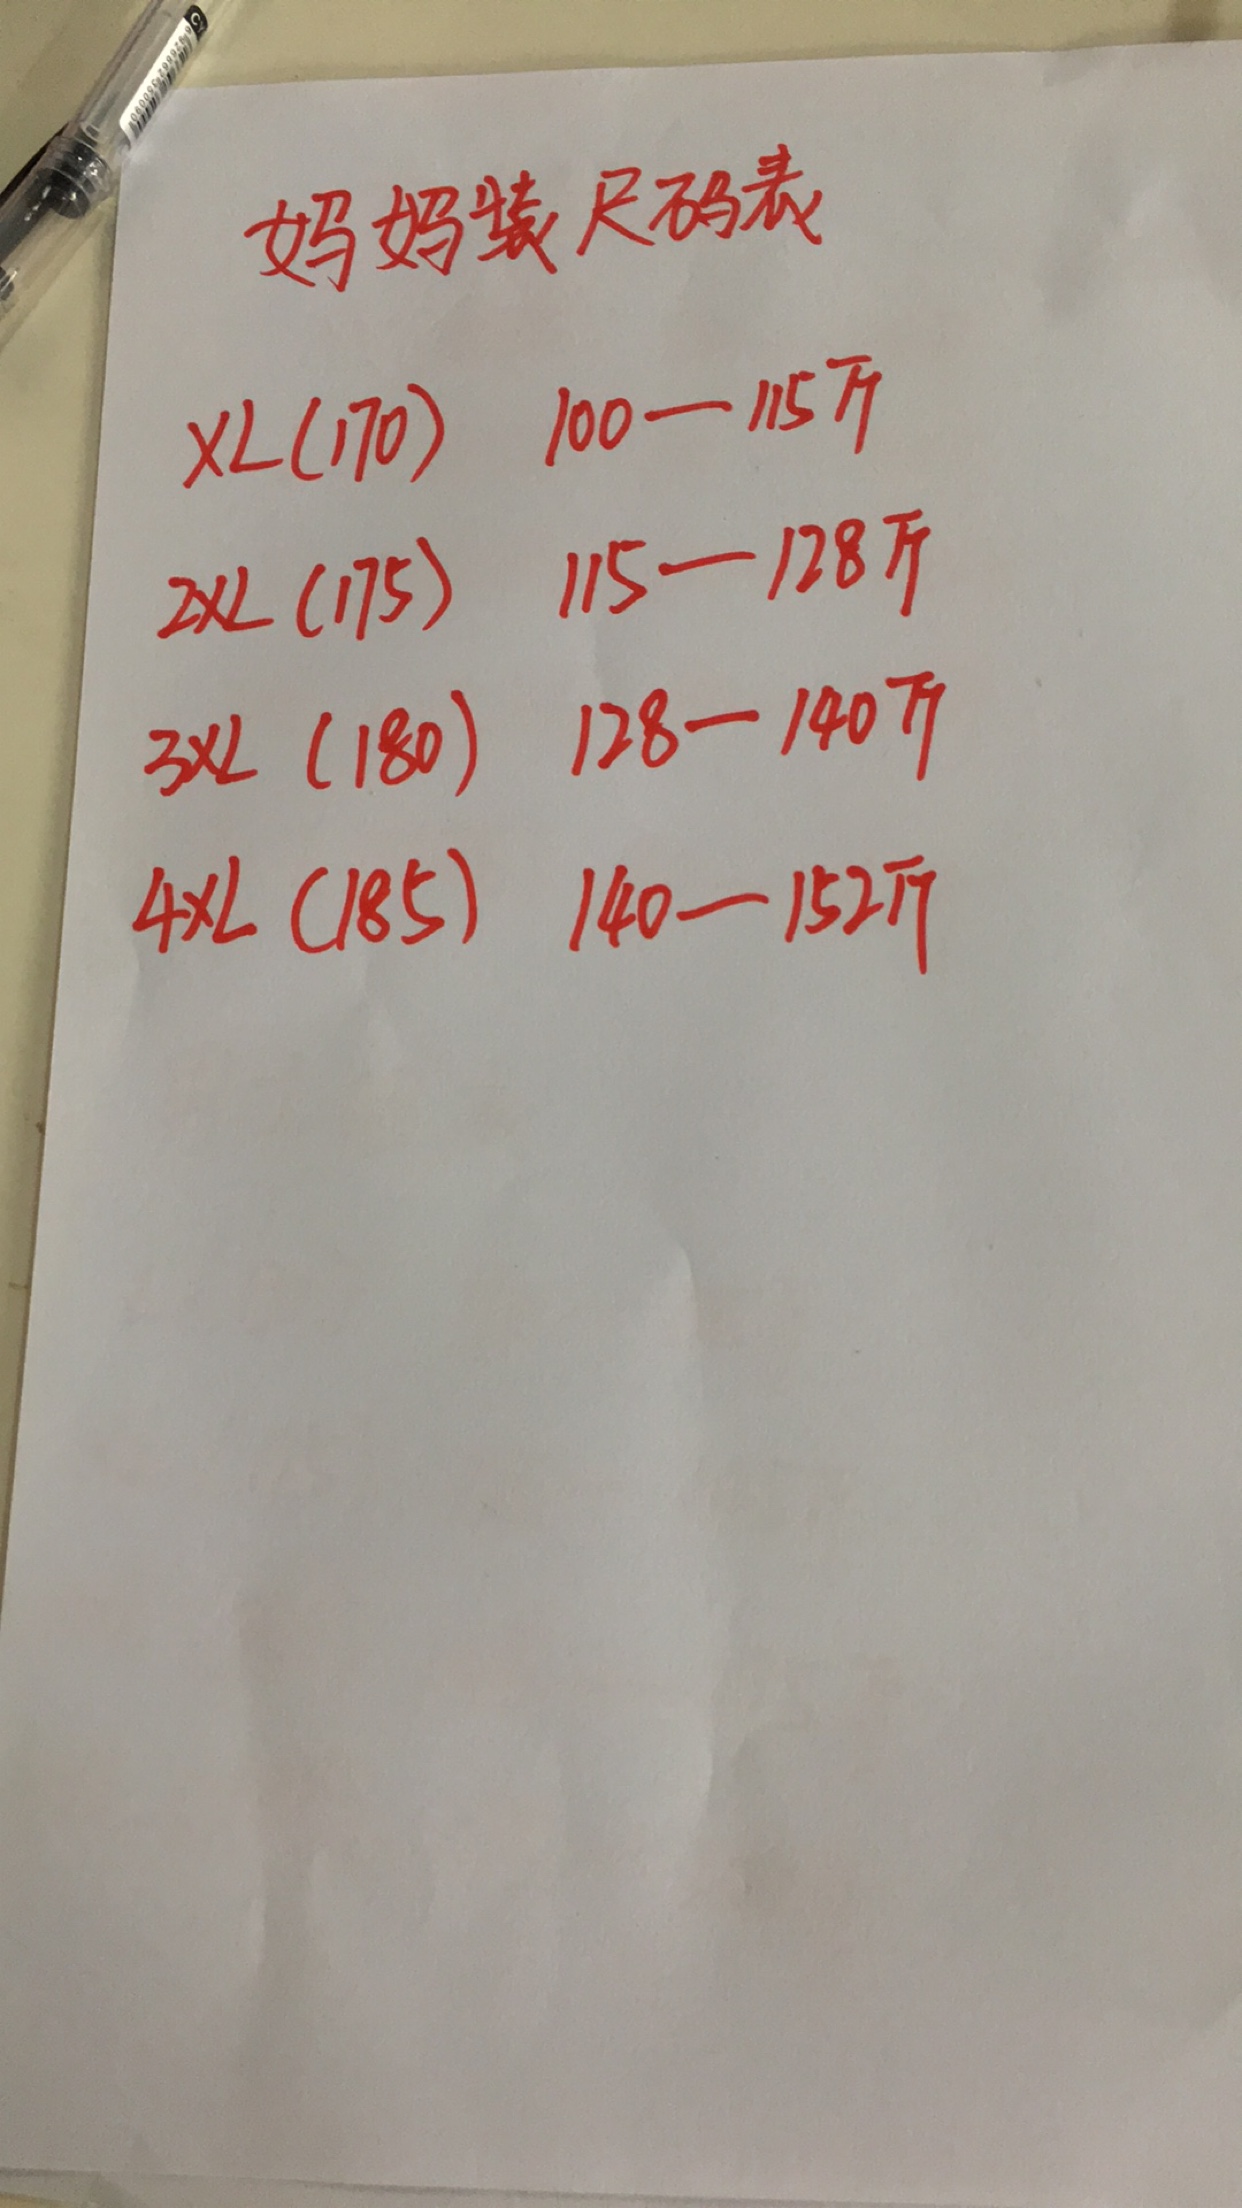 妈妈装尺码表
XL(170) 100—115斤
2XL(175) 115—128斤
3XL(180) 128—140斤
4XL(185) 140—152斤